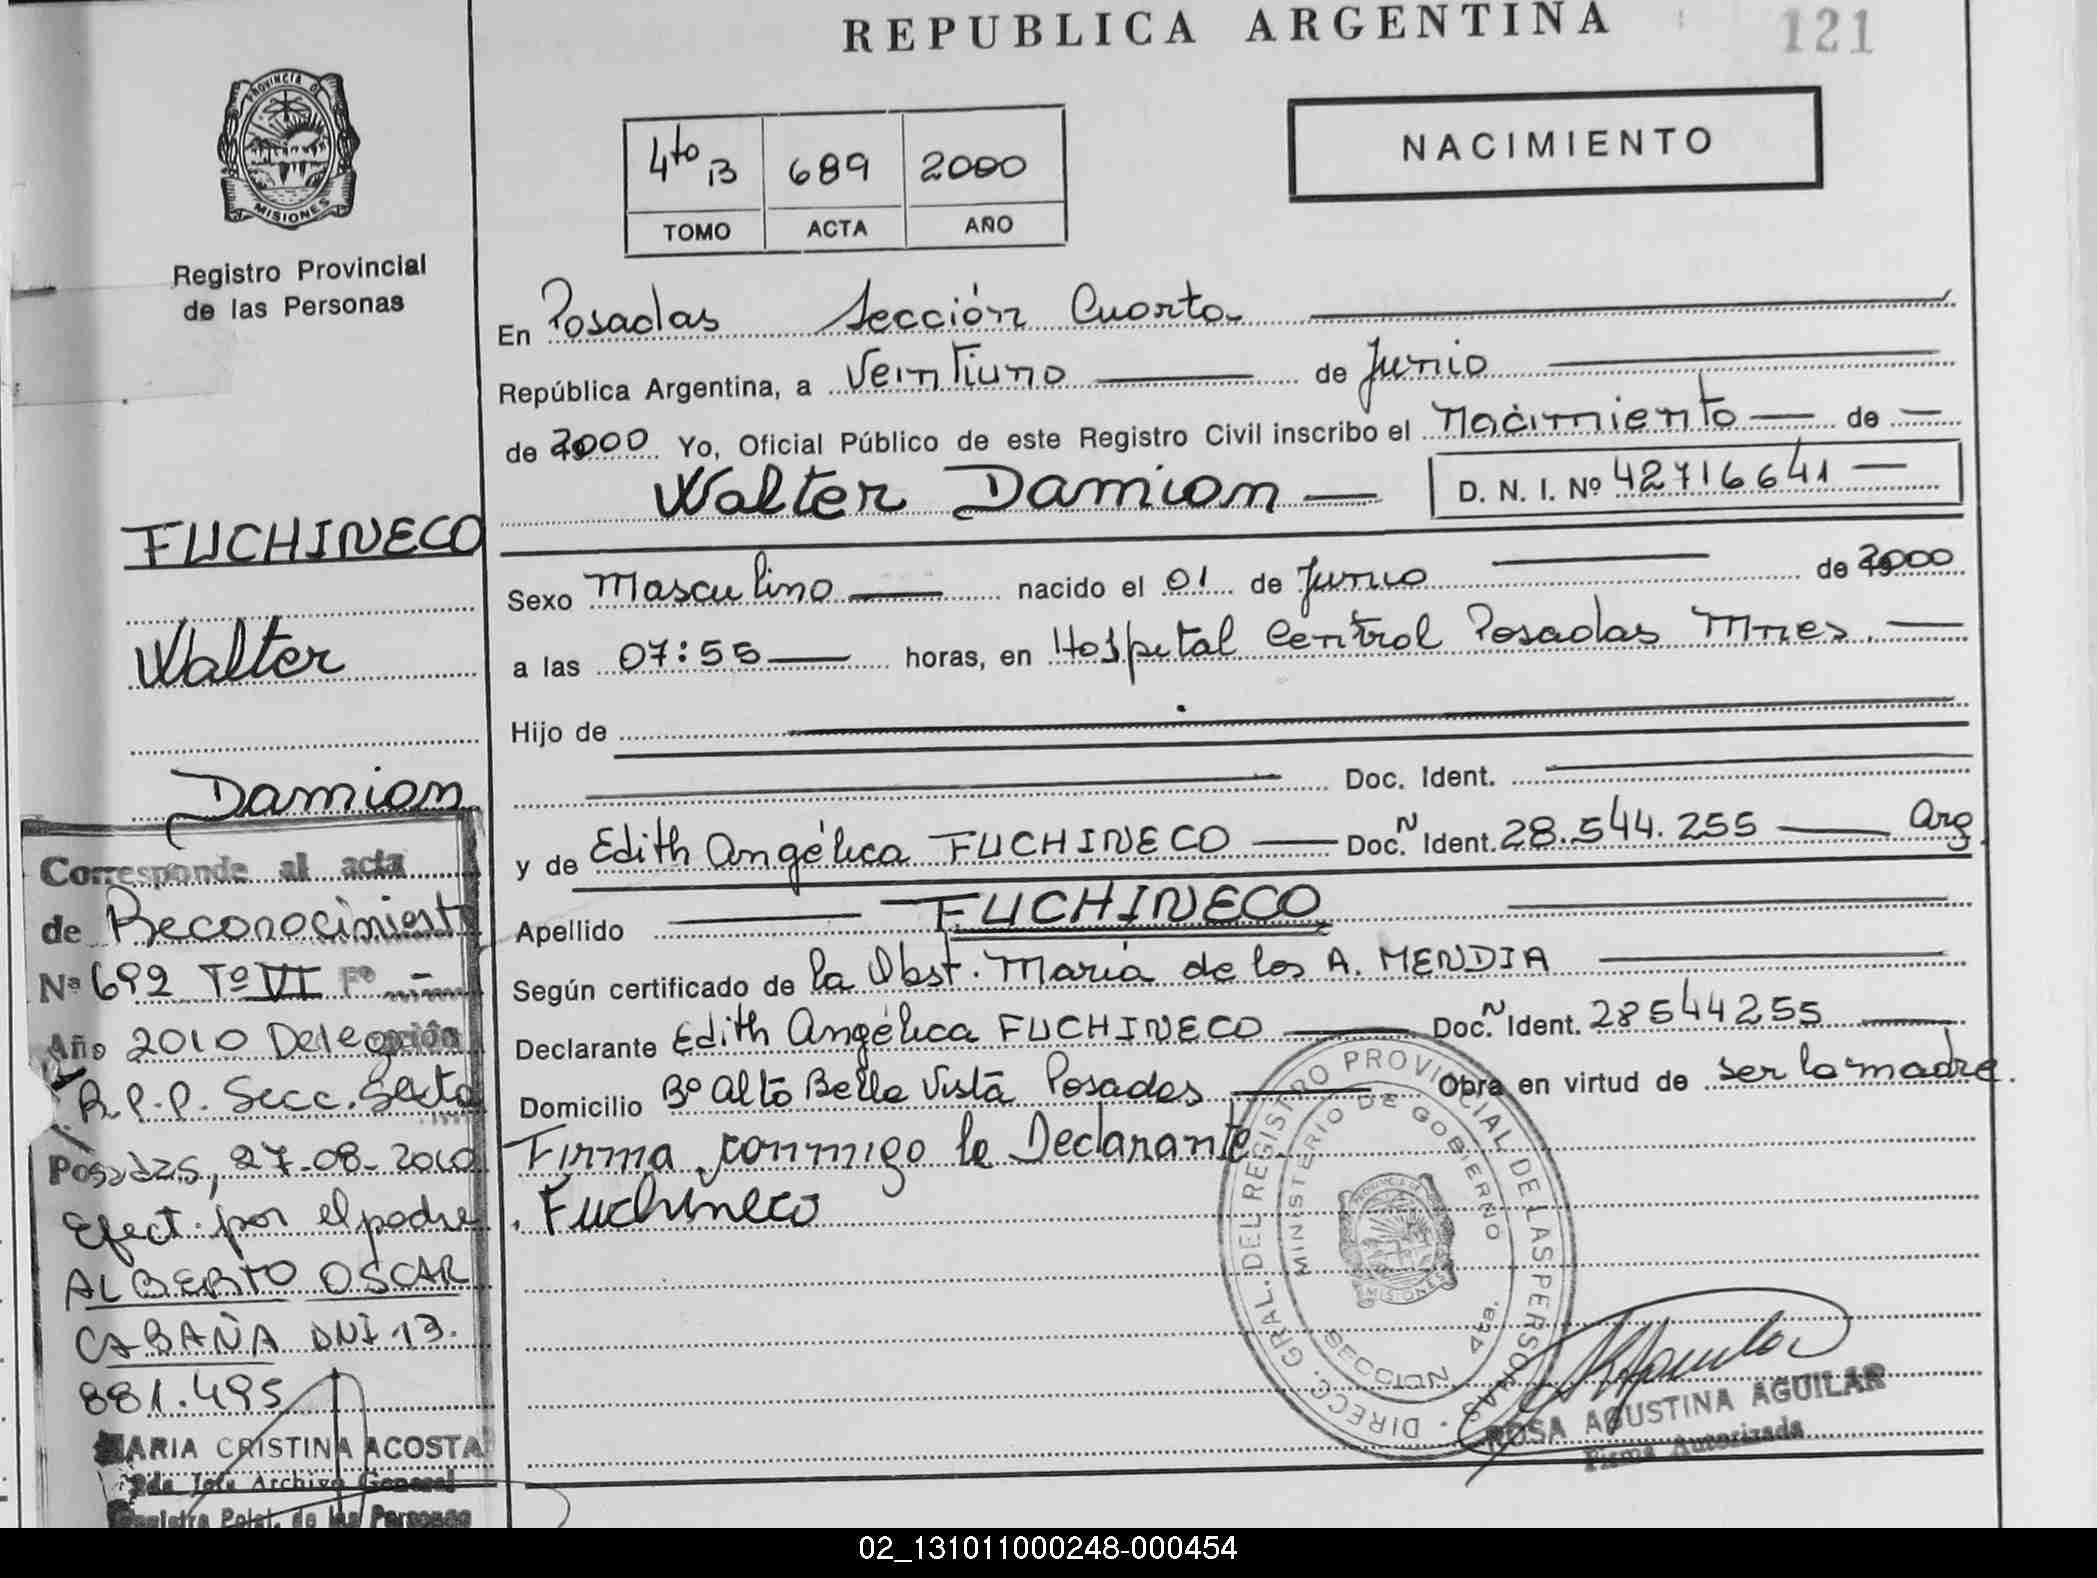 REPUBLICA ARGENTINA
121
PROVINCIA DE
MISIONES
Registro Provincial
de las Personas
4to B 689 2000
TOMO ACTA AÑO
NACIMIENTO
En Posadas Sección Cuarta
República Argentina, a Veintiuno de Junio
de 2000 Yo, Oficial Público de este Registro Civil inscribo el nacimiento de
Walter Damian D. N. I. Nº 42716641
Sexo Masculino nacido el 01 de Junio de 2000
a las 07:55 horas, en Hospital Central Posadas Mnes.
Hijo de
Doc. Ident.
y de Edith Angélica FUCHINECO Doc. N Ident. 28.544.255 Arg
Apellido FUCHINECO
Según certificado de la Obst. María de los A. MENDIA
Declarante Edith Angélica FUCHINECO Doc. N Ident. 28544255
Domicilio Bº Alto Bella Vista Posadas Obra en virtud de ser la madre.
Firma conmigo la Declarante.
Fuchineco
FUCHINECO
Walter
Damian
Corresponde al acta
de Reconocimient
Nº 692 Tº VI Fº -
Año 2010 Delegación
R.P.P. Secc. Sexta
Posadas, 27-08-2010
Efect. por el padre
ALBERTO OSCAR
CABAÑA DNI 13.
881.495
MARIA CRISTINA ACOSTA
2da Jefe Archivo General
Registro Pcial. de las Personas
DIRECC. GRAL. DEL REGISTRO PROVINCIAL DE LAS PERSONAS
MINISTERIO DE GOBIERNO
MISIONES
SECCION 4ta.
ROSA AGUSTINA AGUILAR
Firma Autorizada
02_131011000248-000454